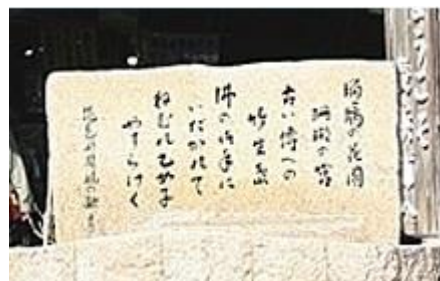 瑠璃の花園
珊瑚の宮
古い伝への
竹生島
佛の御手に
いだかれて
ねむれ乙女子
やすらけく